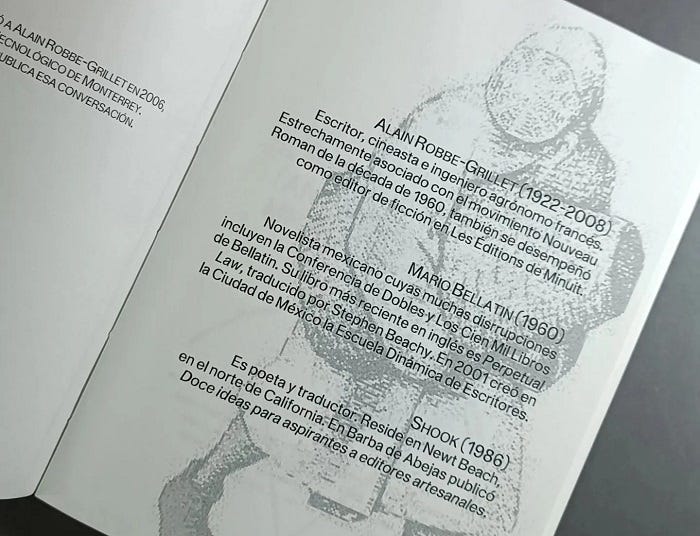 Ó A ALAIN ROBBE-GRILLET EN 2006,
TECNOLÓGICO DE MONTERREY.
PUBLICA ESA CONVERSACIÓN.
ALAIN ROBBE-GRILLET (1922-2008)
Escritor, cineasta e ingeniero agrónomo francés.
Estrechamente asociado con el movimiento Nouveau
Roman de la década de 1960, también se desempeño
como editor de ficción en Les Editions de Minuit.
MARIO BELLATIN (1960)
Novelista mexicano cuyas muchas disrupciones
incluyen la Conferencia de Dobles y Los Cien Mil Libros
de Bellatin. Su libro más reciente en inglés es Perpetual
Law, traducido por Stephen Beachy. En 2001 creó en
la Ciudad de México la Escuela Dinámica de Escritores.
SHOOK (1986)
Es poeta y traductor. Reside en Newt Beach,
en el norte de California. En Barba de Abejas publicó
Doce ideas para aspirantes a editores artesanales.